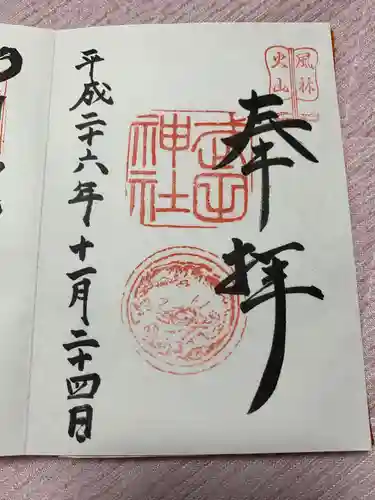 奉拝
風林
火山
武田
神社
平成二十六年十一月二十四日